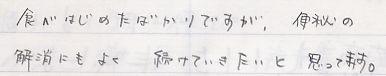 食べはじめたばかりですが、便秘の
解消にもよく 続けていきたいと 思ってます。